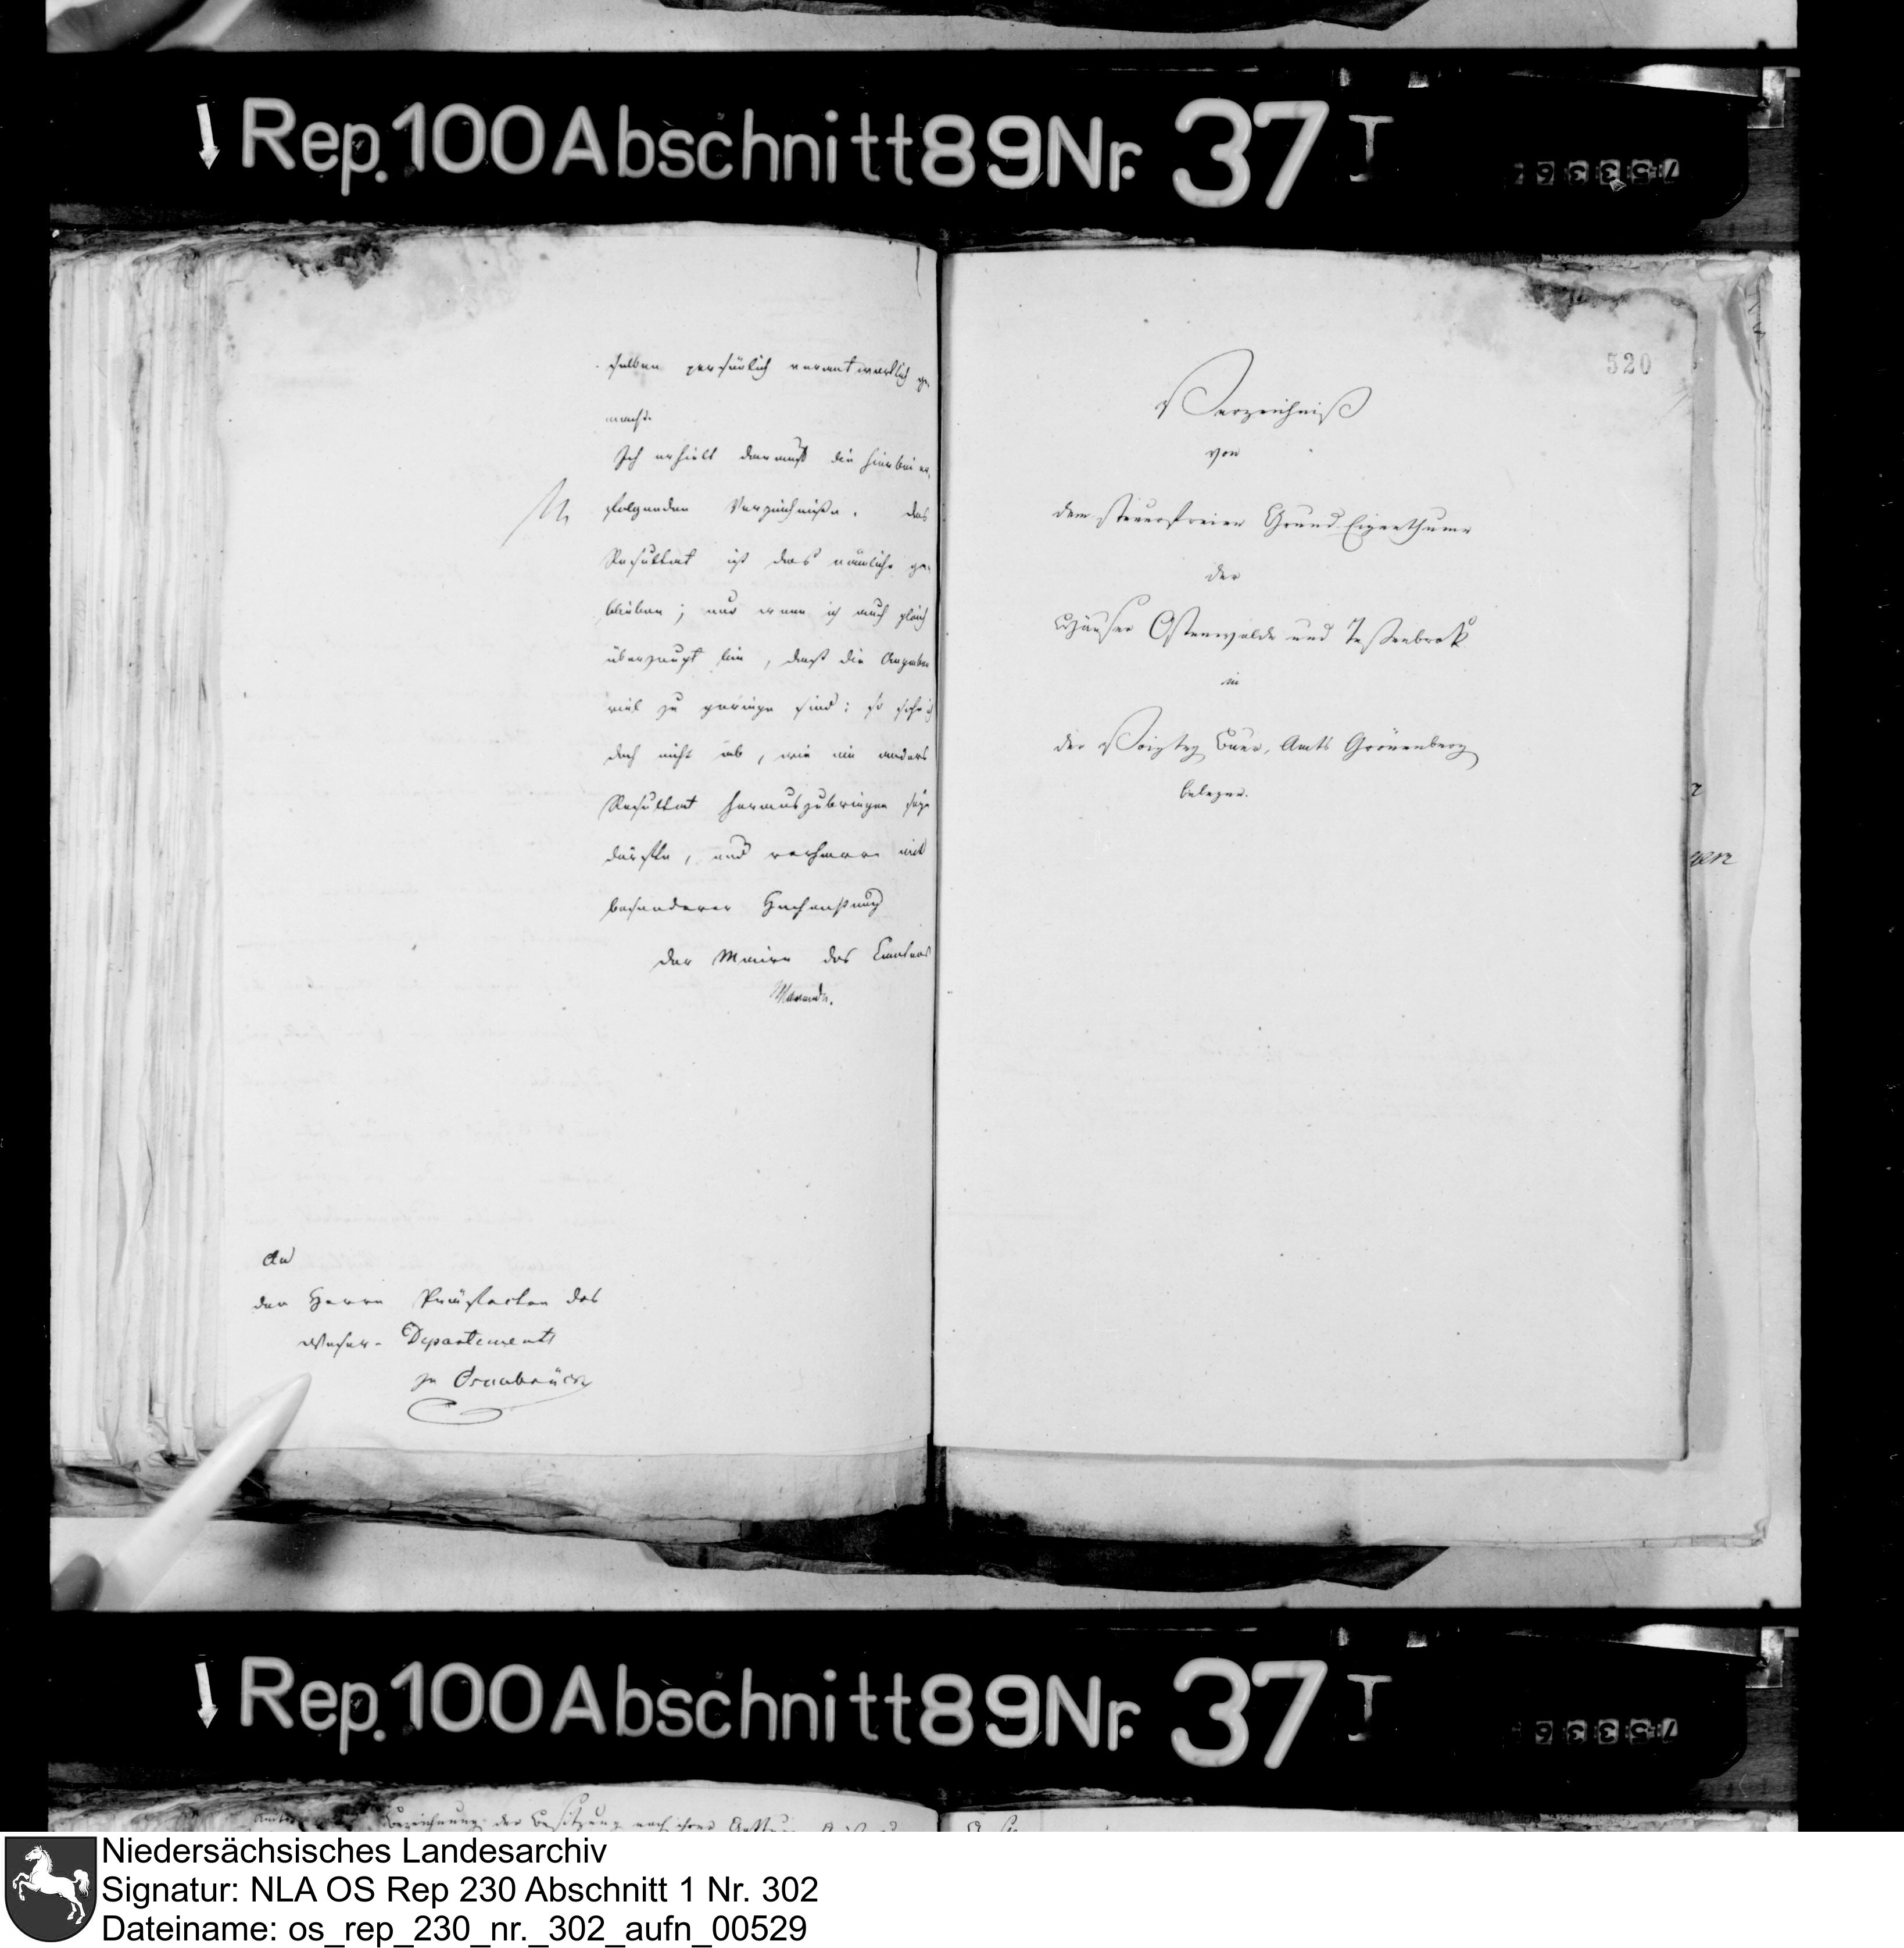 Rep. 100 Abschnitt 89 Nr. 37 I
selben persönlich verantwortlich ge-
macht.
Ich erhielt darauf die hierbei er-
folgenden Verzeichniße. das
Resultat ist das nämliche ge-
blieben; und wenn ich auch gleich
überzeugt bin, daß die Angaben
viel zu geringe sind: so sehe ich
doch nicht ab, wie ein anders
Resultat herauszubringen seyn
dürfte, und verharre mit
besonderer Hochachtung
der Maire des Cantons
An
den Herrn Präfecten des
Weser-Departements
zu Osnabrück
520
Verzeichniß
von
dem steuerfreien Grund-Eigenthume
der
Häuser Ostenwalde und Teßenbrok
in
der Voigtey Buer, Amts Grönenberg
belegen.
Rep. 100 Abschnitt 89 Nr. 37 I
Bezeichnung der Besitzung nach ihrer
Niedersächsisches Landesarchiv
Signatur: NLA OS Rep 230 Abschnitt 1 Nr. 302
Dateiname: os_rep_230_nr._302_aufn_00529